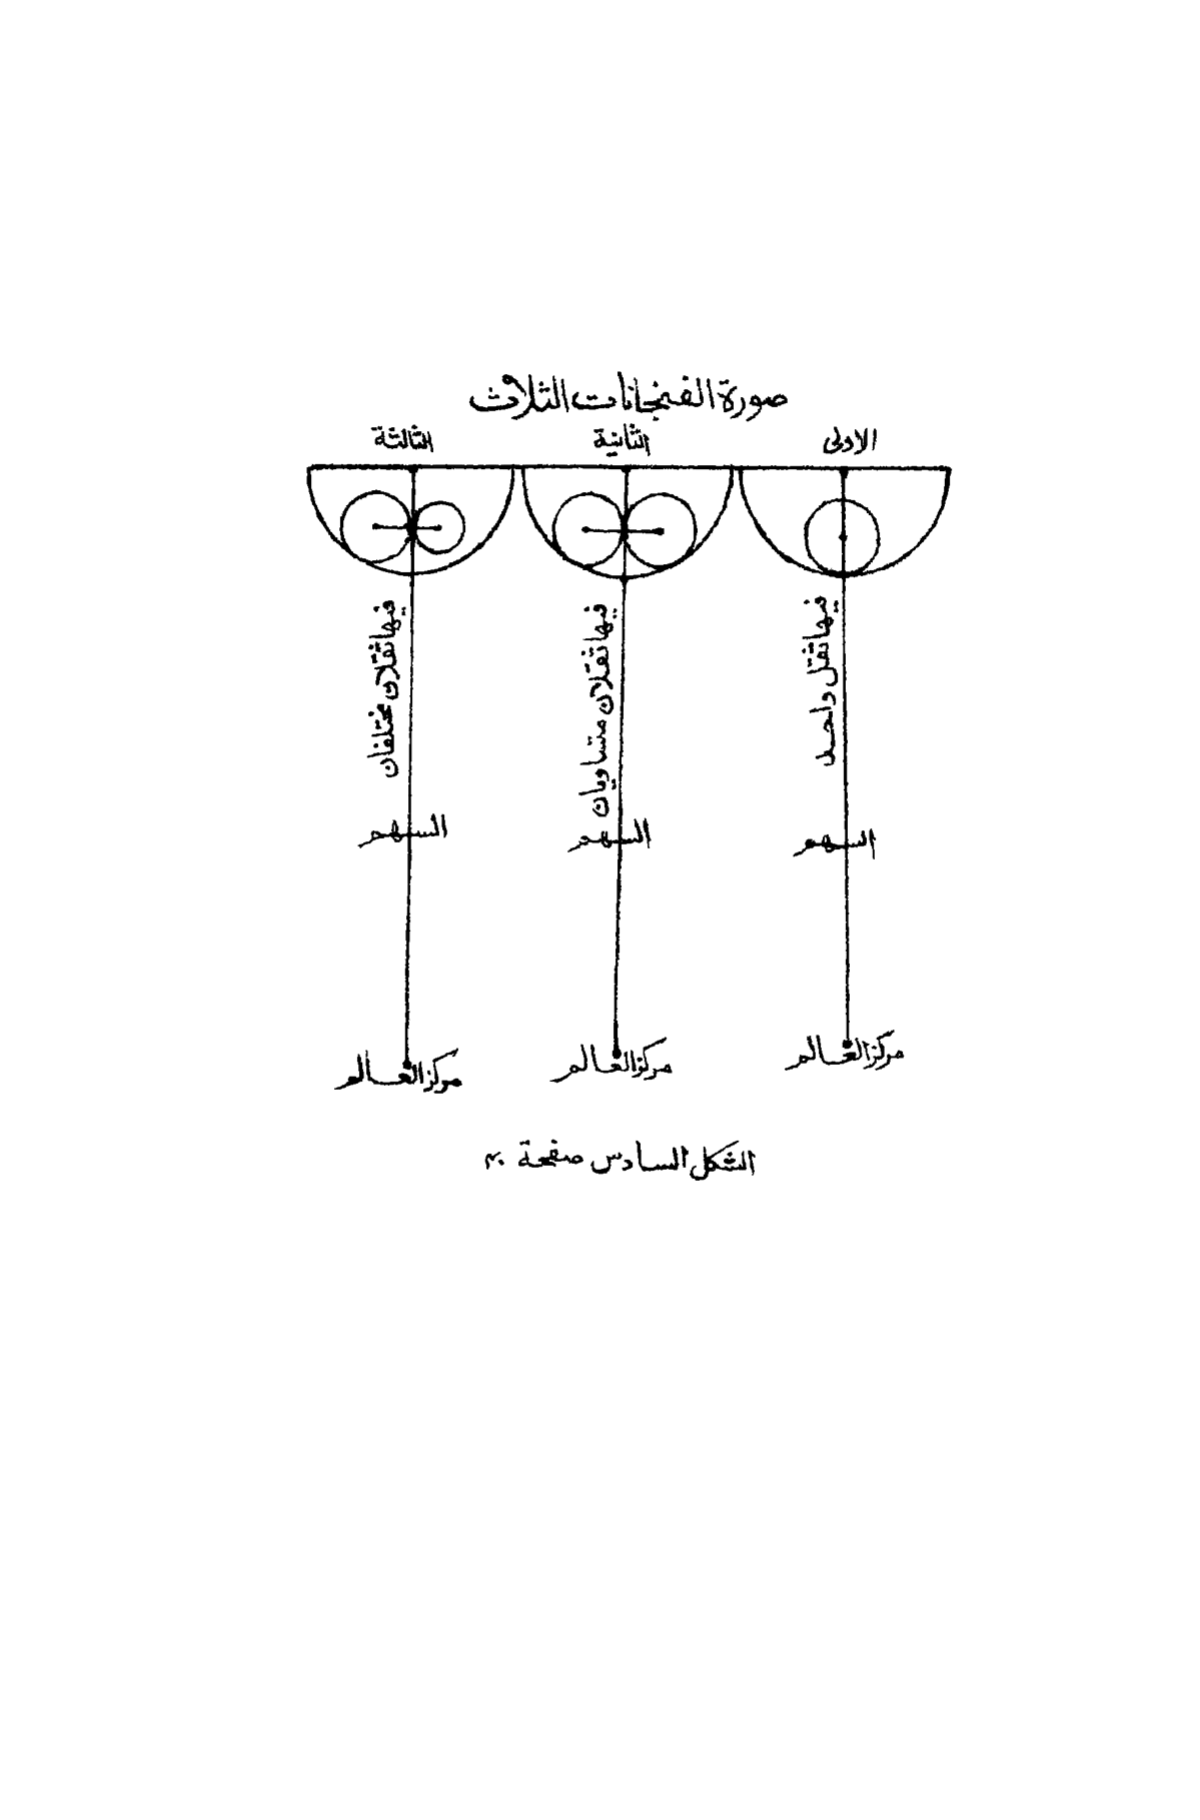 صورة الفنجانات الثلاث
الاولى
الثانية
الثالثة
فيها ثقل واحد
فيها ثقلان متساويان
فيها ثقلان مختلفان
السهم
السهم
السهم
مركز العالم
مركز العالم
مركز العالم
الشكل السادس صفحة